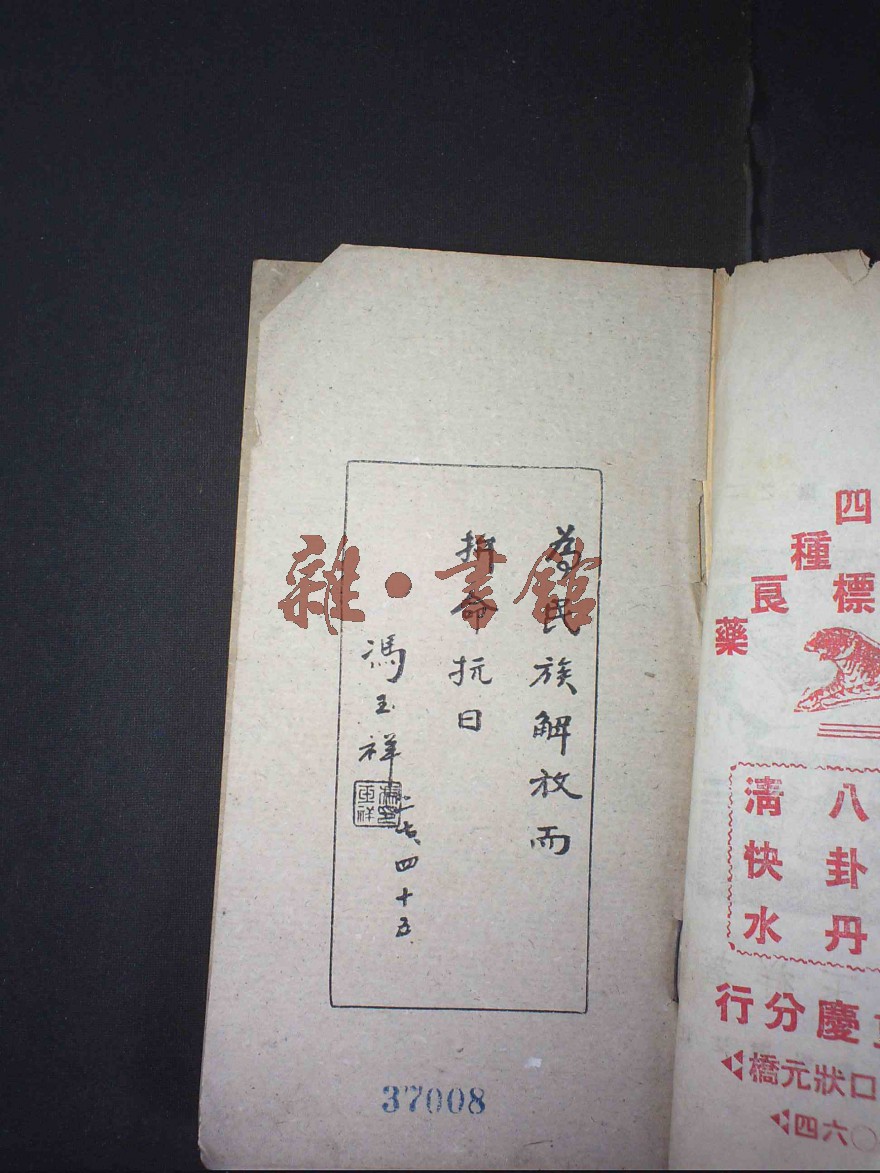 為民族解放而
拚命抗日
馮玉祥
四十五
雜·書館
37008
四種良藥
標
八卦丹
清快水
慶分行
口狀元橋
四六〇